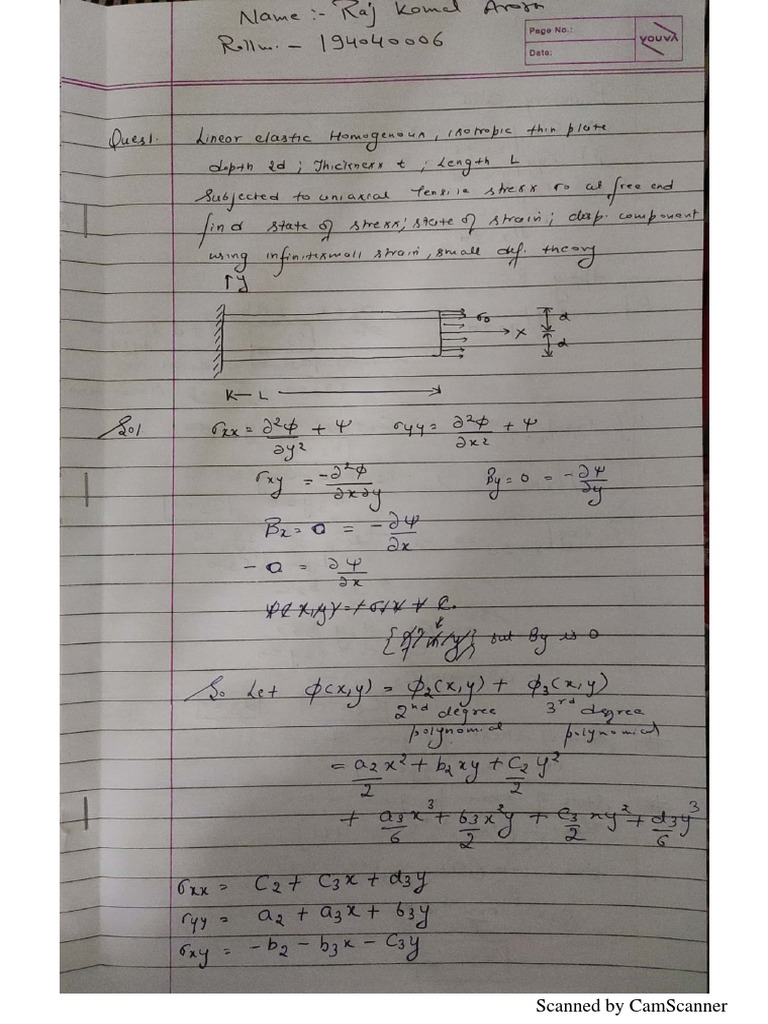 Name :- Raj Komal Arora
Rollno. - 194040006
Page No.:
Date:
YOUVA
Ques1. Linear elastic Homogenous, isotropic thin plate
depth 2d ; Thickness t ; Length L
Subjected to uniaxial Tensile stress σ0 at free end
find state of stress; state of strain; disp. component
using infinitesmall strain, small def. theory
↑y
σ0
x
d
d
K— L ———→
Sol. σxx = ∂²φ/∂y² + Ψ σyy = ∂²φ/∂x² + Ψ
σxy = -∂²φ/∂x∂y By = 0 = -∂Ψ/∂y
Bx = 0 = -∂Ψ/∂x
- 0 = ∂Ψ/∂x
but By is 0
So Let φ(x,y) = φ2(x,y) + φ3(x,y)
2nd degree polynomial 3rd degree polynomial
= a2/2 x² + b2xy + C2/2 y²
+ a3/6 x³ + b3/2 x²y + C3/2 xy² + d3/6 y³
σxx = C2 + C3x + d3y
σyy = a2 + a3x + b3y
σxy = -b2 - b3x - C3y
Scanned by CamScanner